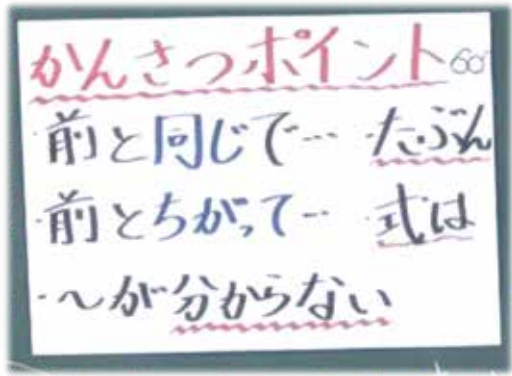 かんさつポイント
・前と同じで… ・たぶん
・前とちがって… ・式は
・〜が分からない